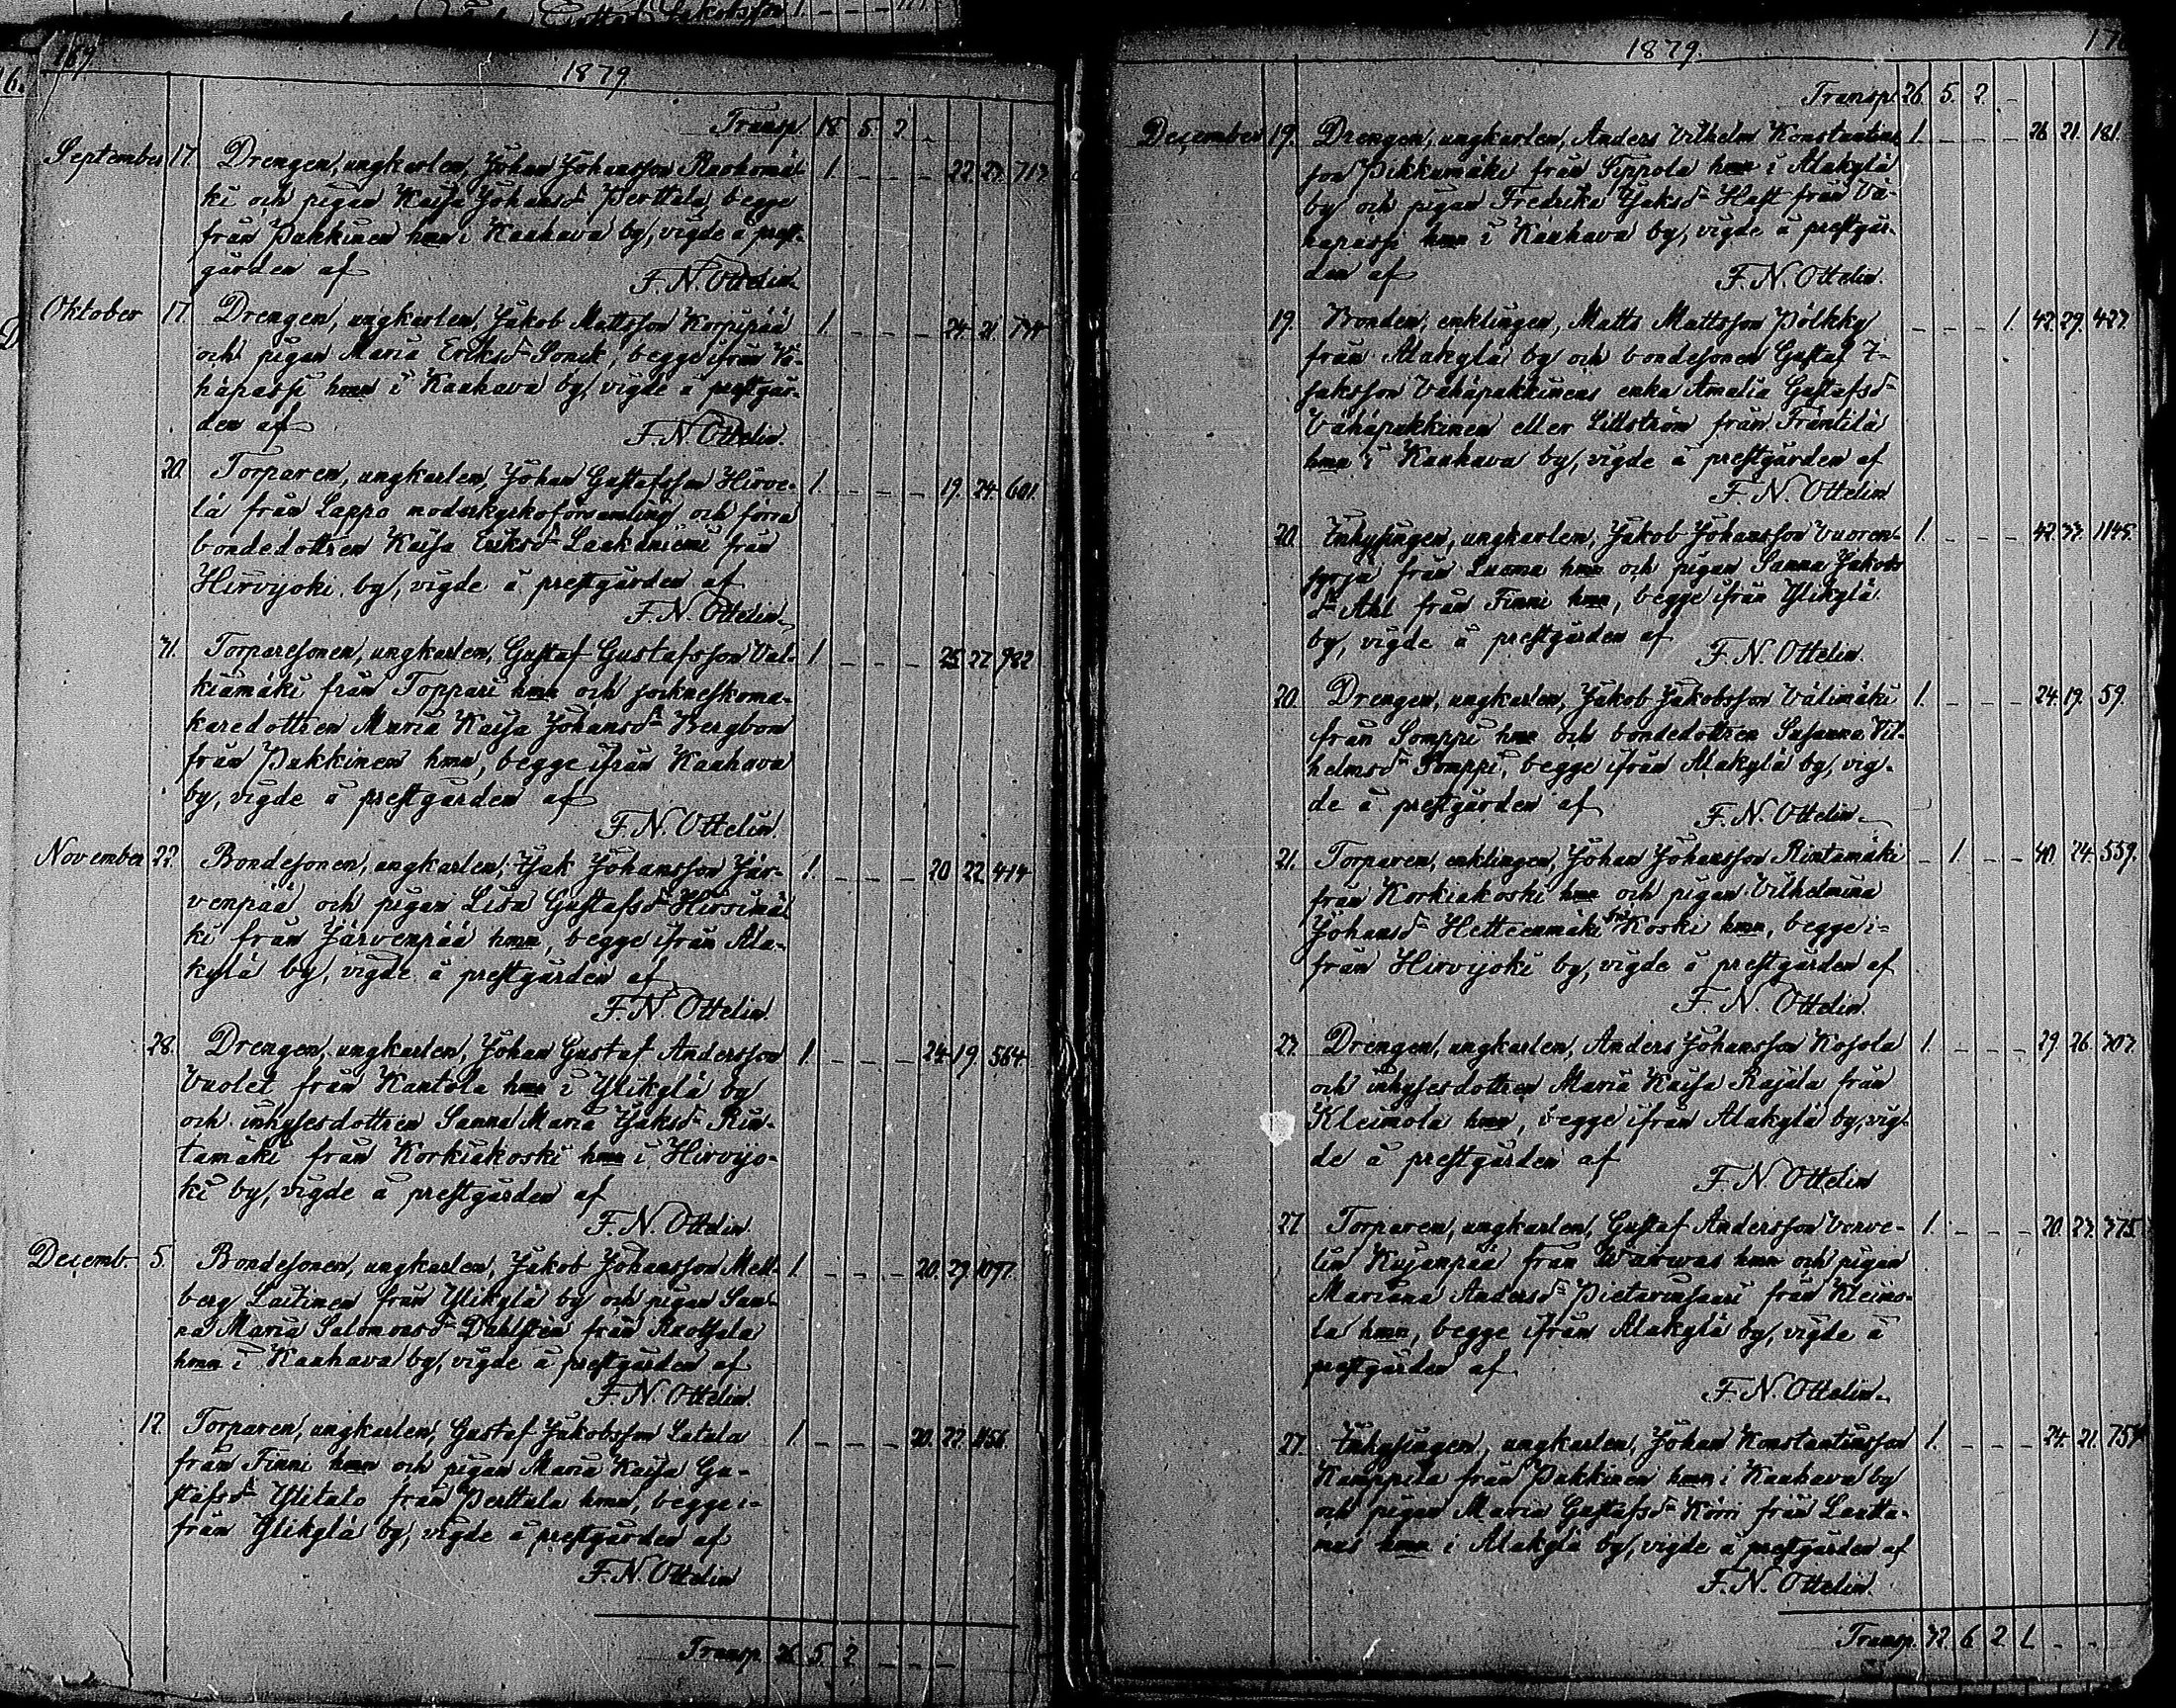 169
1879.
Transp. 18. 5. 2. _
September 17. Drengen, ungkarlen, Johan Johansson Raohomä- 1. _ _ _ _ 22. 23. 713.
ki och pigan Kaisa Johansd:r Perttala, begge
från Pukkinen hmn i Kauhava by, vigde å prest-
gården af
F. N. Ottelin.
Oktober 17. Drengen, ungkarlen, Jakob Mattsson Korpipää 1. _ _ _ _ 24. 21.
och pigan Maria Eriksd:r Sonck, begge ifrån Vä-
häpassi hmn i Kauhava by, vigde å prestgår-
den af
F. N. Ottelin.
20. Torparen, ungkarlen, Johan Gustafsson Hirve- 1. _ _ _ _ 19. 24. 601.
lä från Lappo moderkyrkoförsamling och förra
bondedottren Kaisa Eriksd:r Laakaniemi från
Hirvijoki by, vigde å prestgården af
F. N. Ottelin.
31. Torparesonen, ungkarlen, Gustaf Gustafsson Val- 1. _ _ _ _ 25. 22. 982
kiamäki från Toppari hmn och sockneskoma-
karedottren Maria Kaisa Johansd:r Bergbom
från Pukkinen hmn, begge ifrån Kauhava
by, vigde å prestgården af
F. N. Ottelin.
November 22. Bondesonen, ungkarlen, Isak Johansson Jär- 1. _ _ _ _ 20. 22. 414
venpää och pigan Lisa Gustafsd:r Hirsimä-
ki från Järvenpää hmn, begge ifrån Ala-
kylä by, vigde å prestgården af
F. N. Ottelin.
28. Drengen, ungkarlen, Johan Gustaf Andersson 1. _ _ _ _ 24. 19. 564.
Vuolet från Kantola hmn i Ylikylä by
och inhysesdottren Sanna Maria Isaksd:r Rin-
tamäki från Korkiakoski hmn i Hirvijo-
ki by, vigde å prestgården af
F. N. Ottelin.
Decemb. 5. Bondesonen, ungkarlen, Jakob Johansson Mell- 1. _ _ _ _ 20. 29. 1097.
berg Laitinen från Ylikylä by och pigan San-
na Maria Salomonsd:r Dahlsten från Ruotsala
hmn i Kauhava by, vigde å prestgården af
F. N. Ottelin.
12. Torparen, ungkarlen, Gustaf Jakobsson Latala 1. _ _ _ _ 20. 22. 1156.
från Finni hmn och pigan Maria Kaisa Gu-
stafsd:r Ylitalo från Perttula hmn, begge i-
från Ylikylä by, vigde å prestgården af
F. N. Ottelin
Transp. 26. 5. 2. _ _ _
1879.
Transp. 26. 5. 2. _
December 19. Drengen, ungkarlen, Anders Vilhelm Konstantins- 1. _ _ _ _ 26. 21. 181.
son Pikkumäki från Tippola hmn i Alakylä
by och pigan Fredrika Isaksd:r Haft från Vä-
häpassi hmn i Kauhava by, vigde å prestgår-
den af
F. N. Ottelin.
19. Bonden, enklingen, Matts Mattsson Pölkky _ _ _ 1. 42. 29. 423.
från Alakylä by och bondesonen Gustaf I-
saksson Vähäpukkinens enka Amalia Gustafsd:r
Vähäpukkinen eller Lillström från Fräntilä
hmn i Kauhava by, vigde å prestgården af
F. N. Ottelin
20. Inhysingen, ungkarlen, Jakob Johansson Vuoren- 1. _ _ _ _ 42. 33. 1145.
syrjä från Luoma hmn och pigan Sanna Jakobs
d:r Ahl från Finni hmn, begge ifrån Ylikylä
by, vigde å prestgården af
F. N. Ottelin.
20. Drengen, ungkarlen, Jakob Jakobsson Välimäki 1. _ _ _ _ 24. 19. 59.
från Somppi hmn och bondedottren Susanna Vil-
helmsd:r Somppi, begge ifrån Alakylä by, vig-
de å prestgården af
F. N. Ottelin.
21. Torparen, enklingen, Johan Johansson Rintamäki _ 1. _ _ _ 40. 24. 559.
från Korkiakoski hmn och pigan Vilhelmina
Johansd:r Hetteenmäki frn Koski hmn, begge i-
från Hirvijoki by, vigde å prestgården af
F. N. Ottelin.
23. Drengen, ungkarlen, Anders Johansson Kosola 1. _ _ _ _ 29. 26. 303.
och inhysesdottren Maria Kaisa Rajala från
Kleimola hmn, begge ifrån Alakylä by, vig-
de å prestgården af
F. N. Ottelin
27. Torparen, ungkarlen, Gustaf Andersson Verve- 1. _ _ _ _ 20. 23. 375.
lin Kujanpää från Warwas hmn och pigan
Mariana Andersd:r Pietarinsaari från Kleimo-
la hmn, begge ifrån Alakylä by, vigde å
prestgården af
F. N. Ottelin.
27. Inhysingen, ungkarlen, Johan Konstantinsson 1. _ _ _ _ 24. 21.
Kamppila från Pukkinen hmn i Kauhava by
och pigan Maria Gustafsd:r Körri från Lasta-
mas hmn i Alakylä by, vigde å prestgården af
F. N. Ottelin.
Transp. 32. 6. 2. 1. _ _